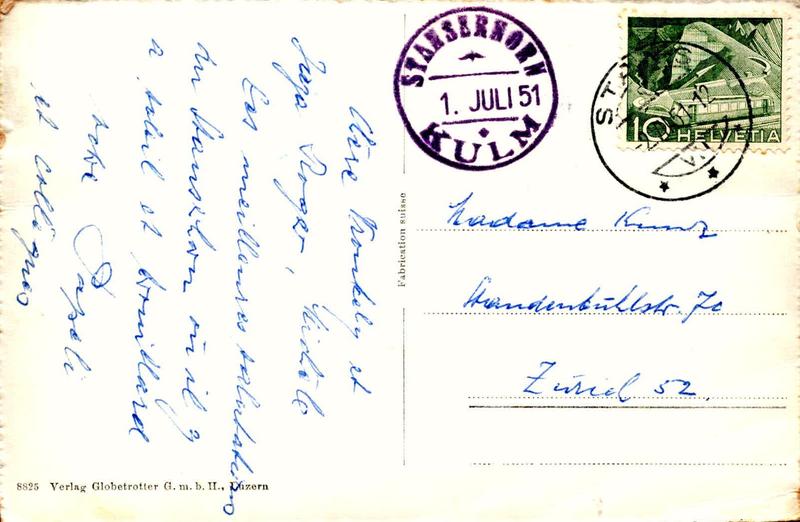 Chère et
Roger,
Les meilleures salutations
du Stanserhorn où il y
a soleil et brouillard
votre Papali
et collègues
STANSERHORN
1. JULI 51
KULM
10 HELVETIA
Fabrication suisse
Madame Kunz
70
Zürich 52
8825 Verlag Globetrotter G. m. b. H., Luzern